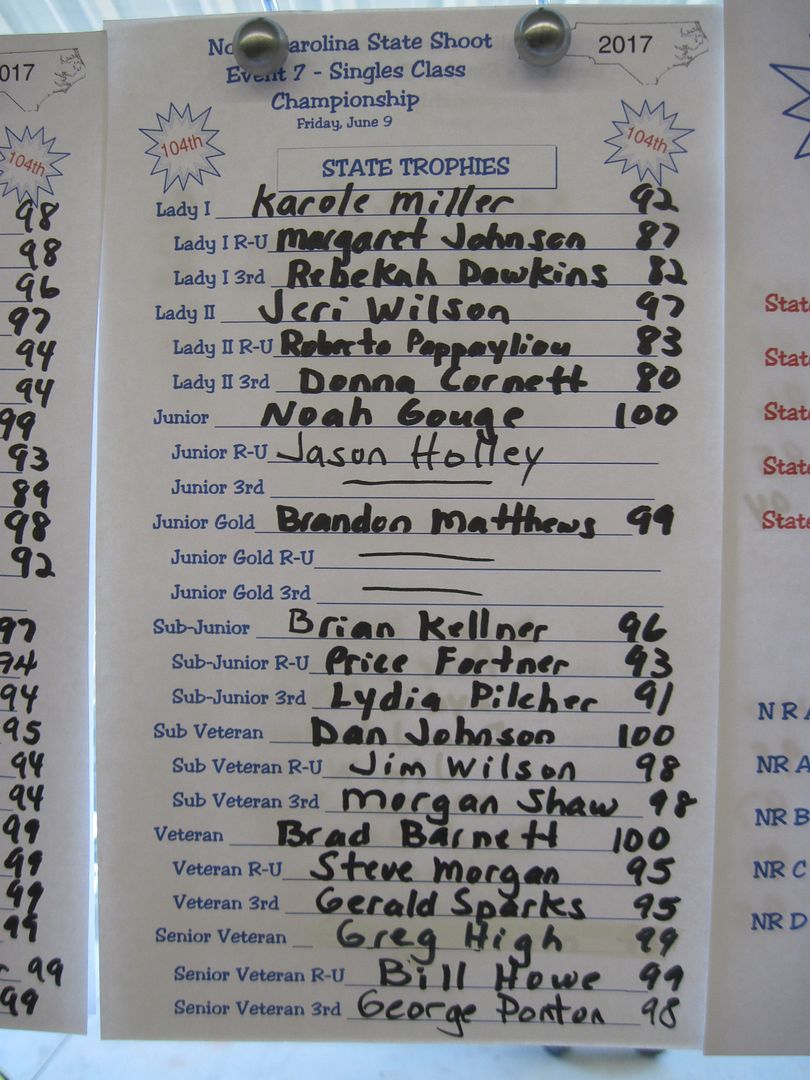 017
104th
98
98
96
97
94
94
99
93
89
98
92
97
94
94
95
94
94
99
99
99
99
99
99
Carolina State Shoot 2017
Event 7 - Singles Class
Championship
Friday, June 9
104th 104th
STATE TROPHIES
Lady I Karole Miller 92
Lady I R-U Margaret Johnson 87
Lady I 3rd Rebekah Dawkins 82
Lady II Jeri Wilson 97
Lady II R-U 83
Lady II 3rd Donna Cornett 80
Junior Noah Gouge 100
Junior R-U Jason Holley
Junior 3rd
Junior Gold Brandon Matthews 99
Junior Gold R-U
Junior Gold 3rd
Sub-Junior Brian Kellner 96
Sub-Junior R-U Price Fortner 93
Sub-Junior 3rd Lydia Pilcher 91
Sub Veteran Dan Johnson 100
Sub Veteran R-U Jim Wilson 98
Sub Veteran 3rd Morgan Shaw 98
Veteran Brad Barnett 100
Veteran R-U Steve Morgan 95
Veteran 3rd Gerald Sparks 95
Senior Veteran Greg High 99
Senior Veteran R-U Bill Howe 99
Senior Veteran 3rd George Ponton 98
Stat
Stat
Stat
Stat
Stat
NRA
NR A
NR B
NR C
NR D